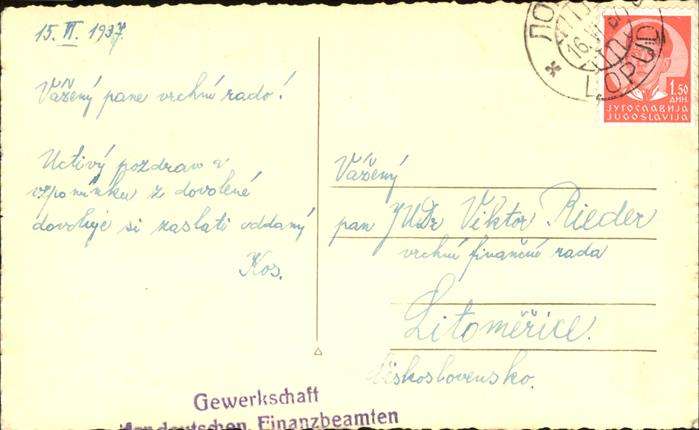 15. VI. 1937
Vážený pane vrchní rado!
Uctivý pozdrav a
vzpomínku z dovolené
dovoluje si zaslati oddaný
Kos.
ЛО
LOPUD
16. VI
1.50
ДИН.
ЈУГОСЛАВИЈА
JUGOSLAVIJA
Vážený
pan JUDr Viktor Rieder
vrchní finanční rada
Litoměřice.
Československo.
Gewerkschaft
deutschen Finanzbeamten